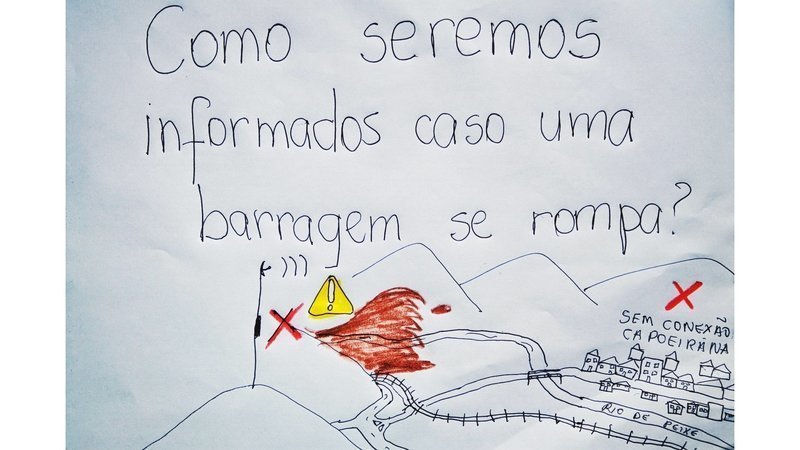 Como seremos
informados caso uma
barragem se rompa?
SEM CONEXÃO
CAPOEIRANA
RIO DE PEIXE